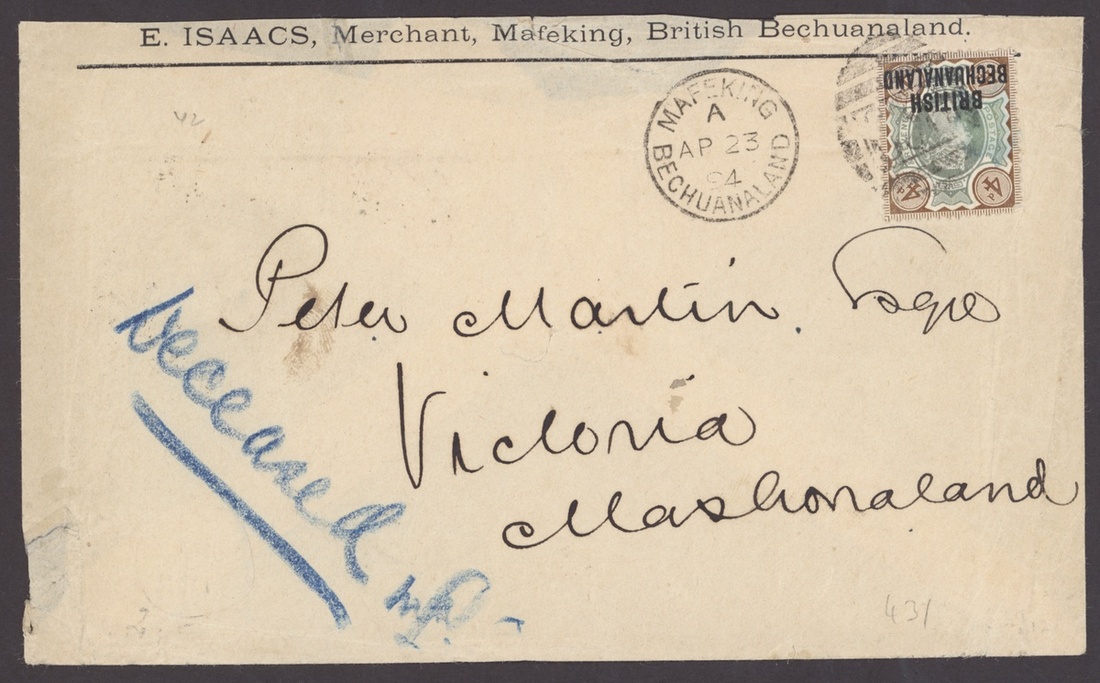 E. ISAACS, Merchant, Mafeking, British Bechuanaland.
MAFEKING
A
AP 23
94
BECHUANALAND
BRITISH
BECHUANALAND
POSTAGE
4d
4d
Peter Martin Esqre
Victoria
Mashonaland
Deceased
42
431